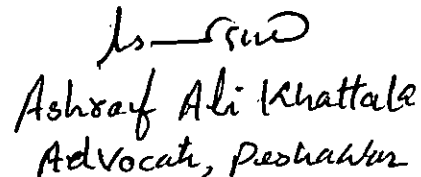 Ashraf Ali Khattak
Advocate, Peshawar